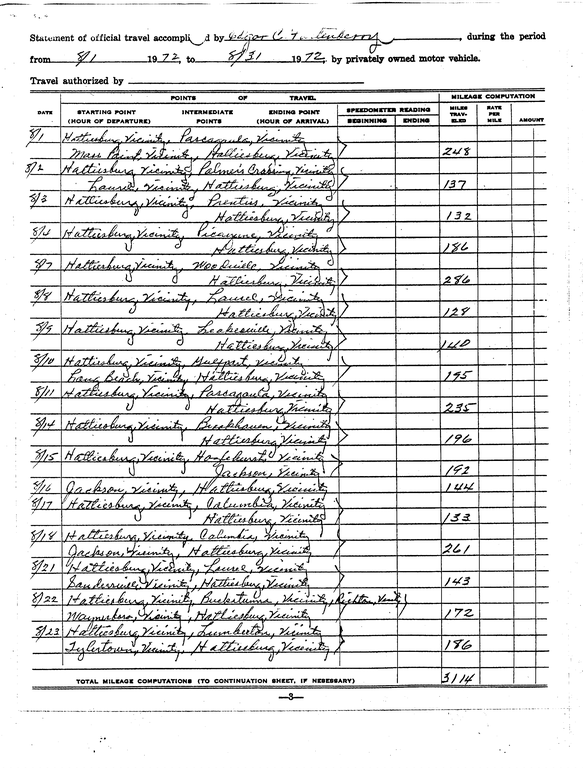 Statement of official travel accompli d by Edgar C. F t nberry, during the period
from 8/1 1972, to 8/31 1972, by privately owned motor vehicle.
Travel authorized by
POINTS OF TRAVEL MILEAGE COMPUTATION
DATE STARTING POINT (HOUR OF DEPARTURE) INTERMEDIATE POINTS ENDING POINT (HOUR OF ARRIVAL) SPEEDOMETER READING BEGINNING ENDING MILES TRAV-ELED RATE PER MILE AMOUNT
8/1 Hattiesburg Vicinity, Pascagoula, Vicinity
Moss Point, Vicinity, Hattiesburg, Vicinity 248
8/2 Hattiesburg, Vicinity, Palmer's Crossing, Vicinity
Laurel, Vicinity, Hattiesburg, Vicinity 137
8/3 Hattiesburg, Vicinity, Prentiss, Vicinity
Hattiesburg, Vicinity 132
8/4 Hattiesburg, Vicinity, Picayune, Vicinity
Hattiesburg, Vicinity 186
8/7 Hattiesburg, Vicinity, Woodville, Vicinity
Hattiesburg, Vicinity 286
8/8 Hattiesburg, Vicinity, Laurel, Vicinity
Hattiesburg, Vicinity 128
8/9 Hattiesburg, Vicinity, Leakesville, Vicinity
Hattiesburg, Vicinity 140
8/10 Hattiesburg, Vicinity, Gulfport, Vicinity
Long Beach, Vicinity, Hattiesburg, Vicinity 195
8/11 Hattiesburg, Vicinity, Pascagoula, Vicinity
Hattiesburg, Vicinity 235
8/14 Hattiesburg, Vicinity, Brookhaven, Vicinity
Hattiesburg, Vicinity 196
8/15 Hattiesburg, Vicinity, Hazlehurst, Vicinity
Jackson, Vicinity 192
8/16 Jackson, Vicinity, Hattiesburg, Vicinity 144
8/17 Hattiesburg, Vicinity, Columbia, Vicinity
Hattiesburg, Vicinity 133
8/18 Hattiesburg, Vicinity, Columbia, Vicinity
Jackson, Vicinity, Hattiesburg, Vicinity 261
8/21 Hattiesburg, Vicinity, Laurel, Vicinity
Sandersville, Vicinity, Hattiesburg, Vicinity 143
8/22 Hattiesburg, Vicinity, Buckatunna, Vicinity, Richton, Vicinity
Waynesboro, Vicinity, Hattiesburg, Vicinity 172
8/23 Hattiesburg, Vicinity, Lumberton, Vicinity
Tylertown, Vicinity, Hattiesburg, Vicinity 186
TOTAL MILEAGE COMPUTATIONS (TO CONTINUATION SHEET, IF NESESSARY) 3114
—3—